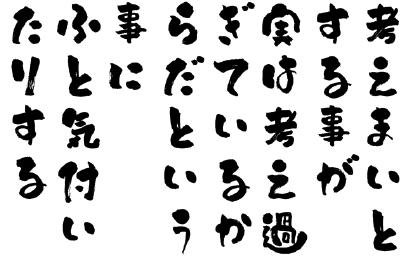 考えまいと
する事が
実は考え過
ぎているか
らだという
事に
ふと気付い
たりする